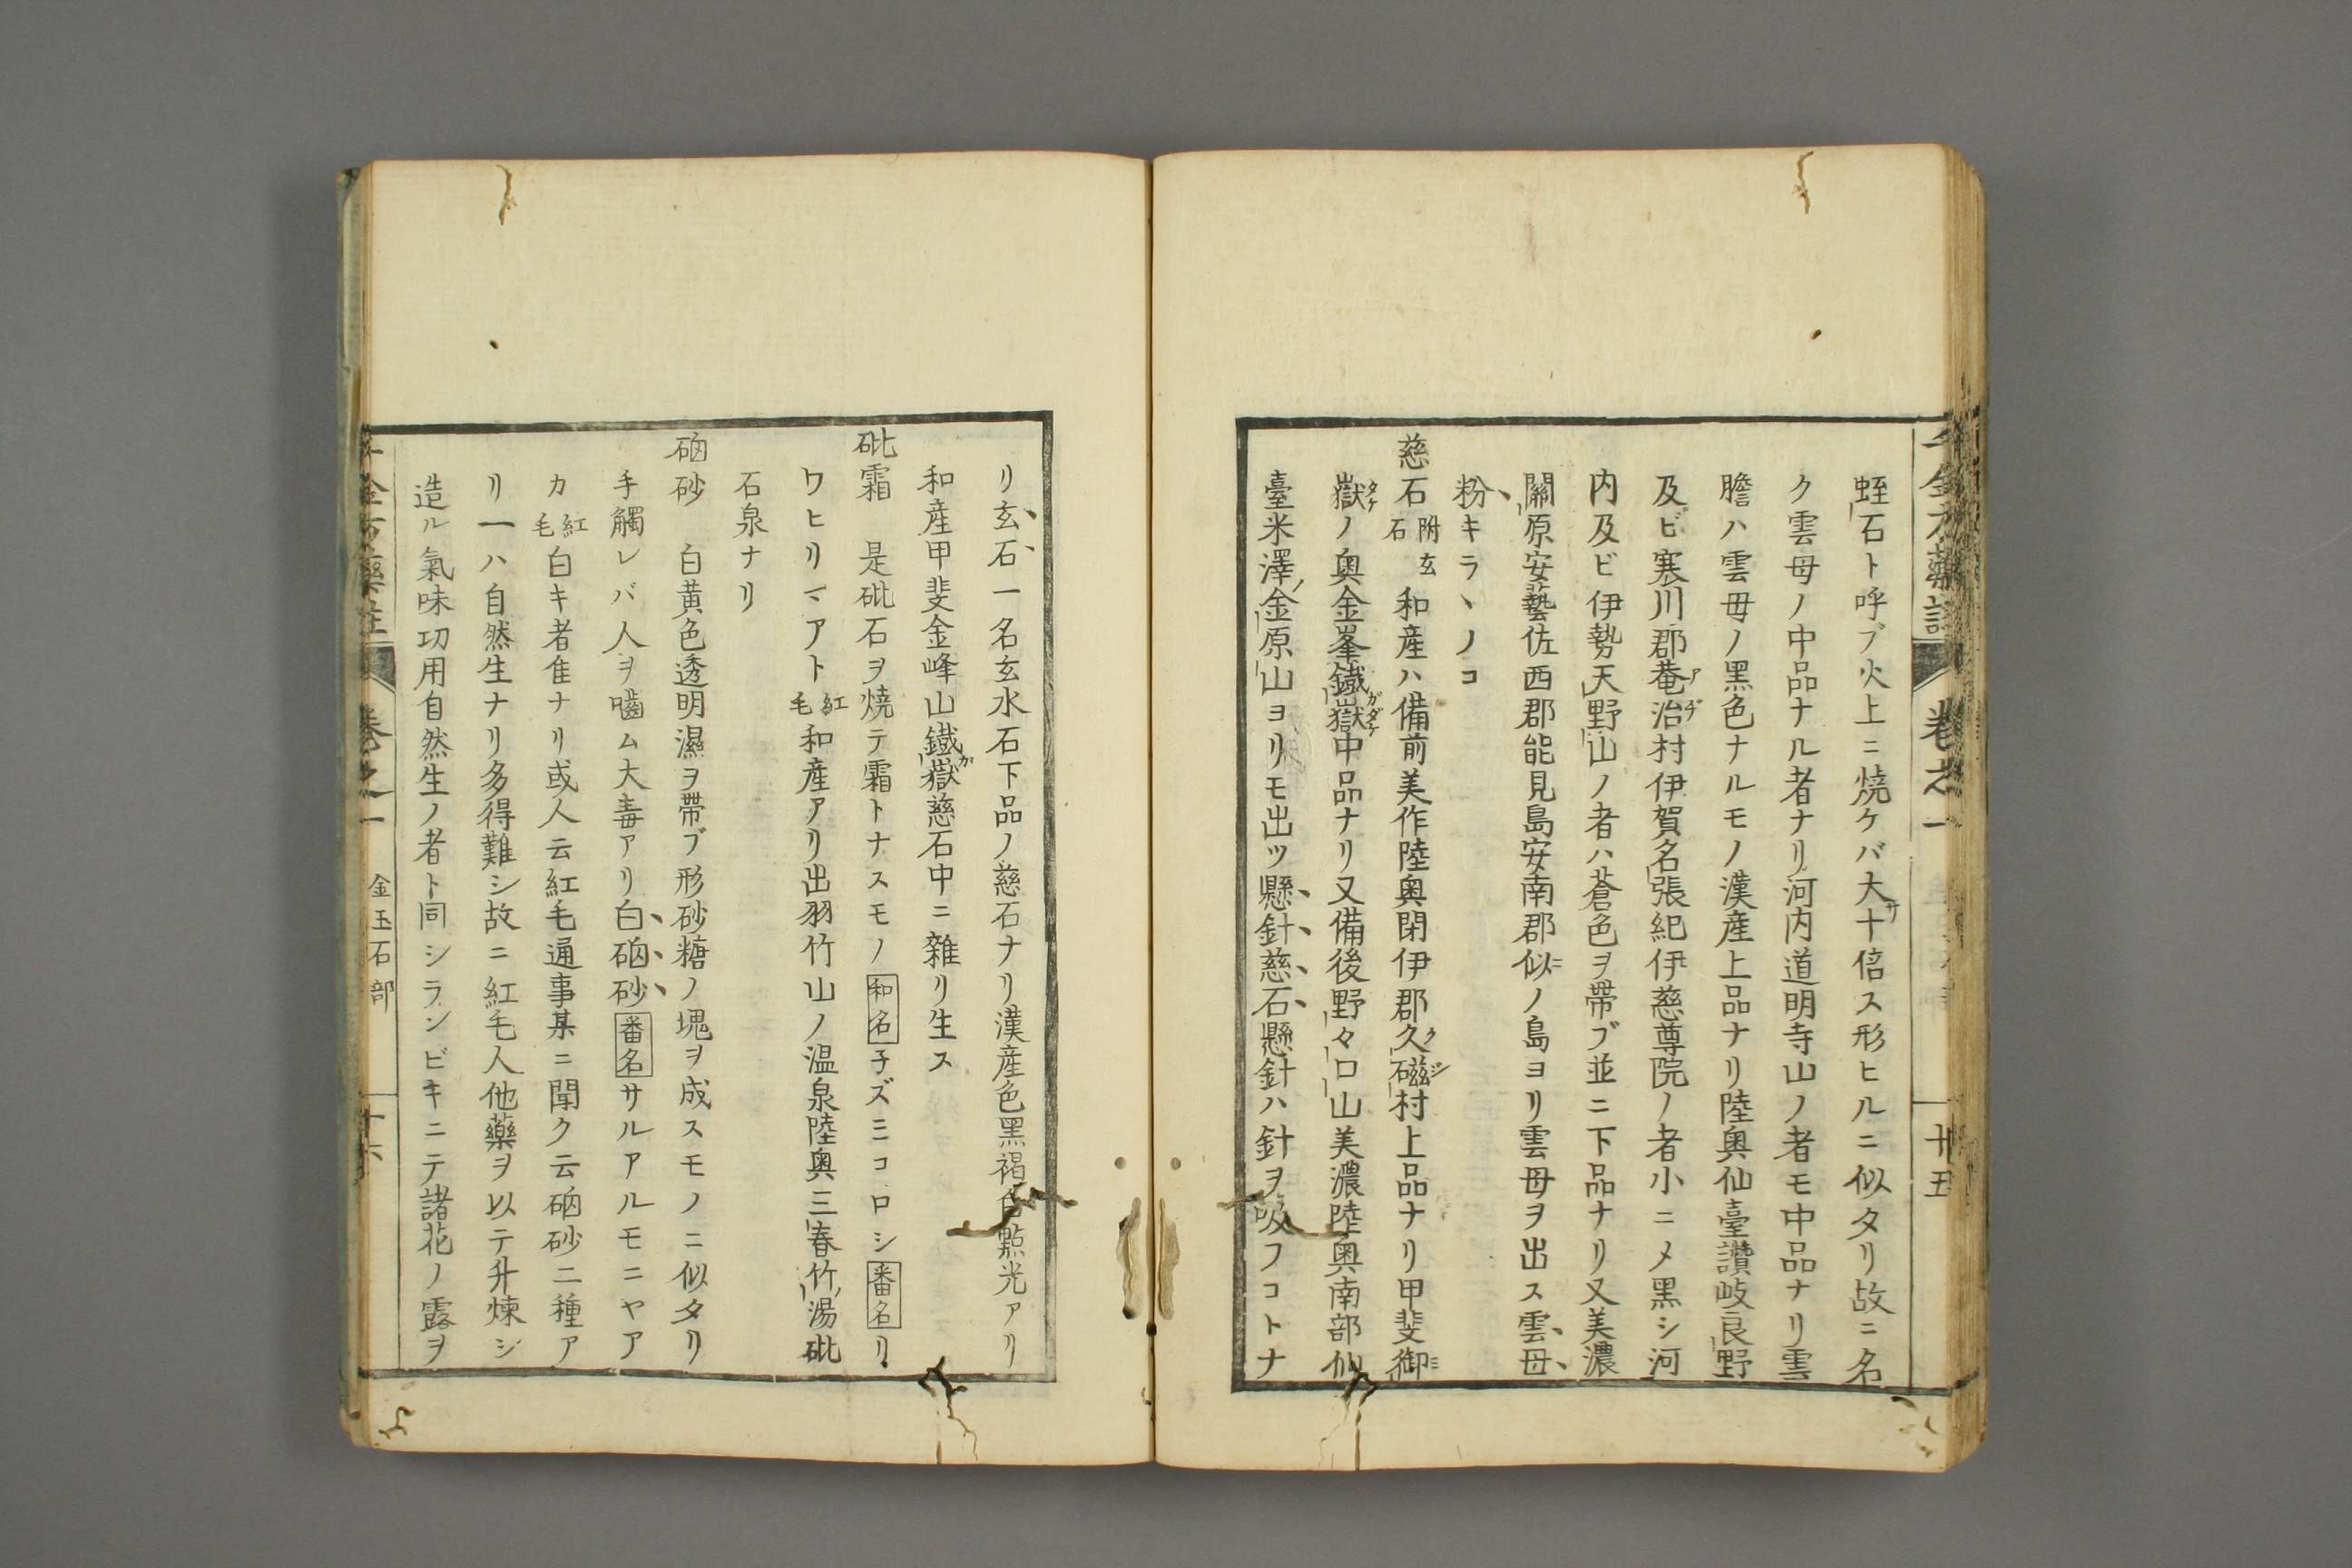 千金方藥註
卷之一
廿五
蛭石ト呼ブ火上ニ焼ケバ大サ十倍ス形ヒルニ似タリ故ニ名
ク雲母ノ中品ナル者ナリ河内道明寺山ノ者モ中品ナリ雲
膽ハ雲母ノ黒色ナルモノ漢産上品ナリ陸奥仙臺讚岐良野
及ビ寒川郡菴治村伊賀名張紀伊慈尊院ノ者小ニメ黒シ河
内及ビ伊勢天野山ノ者ハ蒼色ヲ帶ブ並ニ下品ナリ又美濃
關原安藝佐西郡能見島安南郡似ノ島ヨリ雲母ヲ出ス雲母
粉キラヽノコ
慈石 附玄石 和産ハ備前美作陸奥閉伊郡久磁村上品ナリ甲斐御
嶽ノ奥金峯鐵嶽中品ナリ又備後野々口山美濃陸奥南部仙
臺米澤金原山ヨリモ出ツ懸針慈石懸針ハ針ヲ吸フコトナ
リ玄石一名玄水石下品ノ慈石ナリ漢産色黒褐色點光アリ
和産甲斐金峰山鐵嶽慈石中ニ雜リ生ス
砒霜 是砒石ヲ焼テ霜トナスモノ和名子ズミコロシ番名リ
ワヒリマアト紅毛和産アリ出羽竹山ノ温泉陸奥三春竹ノ湯砒
石泉ナリ
硇砂 白黄色透明濕ヲ帶ブ形砂糖ノ塊ヲ成スモノニ似タリ
手觸レバ人ヲ嚙ム大毒アリ白硇砂番名サルアルモニヤア
カ紅毛白キ者隹ナリ或人云紅毛通事某ニ聞ク云硇砂二種ア
リ一ハ自然生ナリ多得難シ故ニ紅毛人他藥ヲ以テ升煉シ
造ル氣味功用自然生ノ者ト同シランビキニテ諸花ノ露ヲ
千金方藥註
卷之一
金玉石部
十六